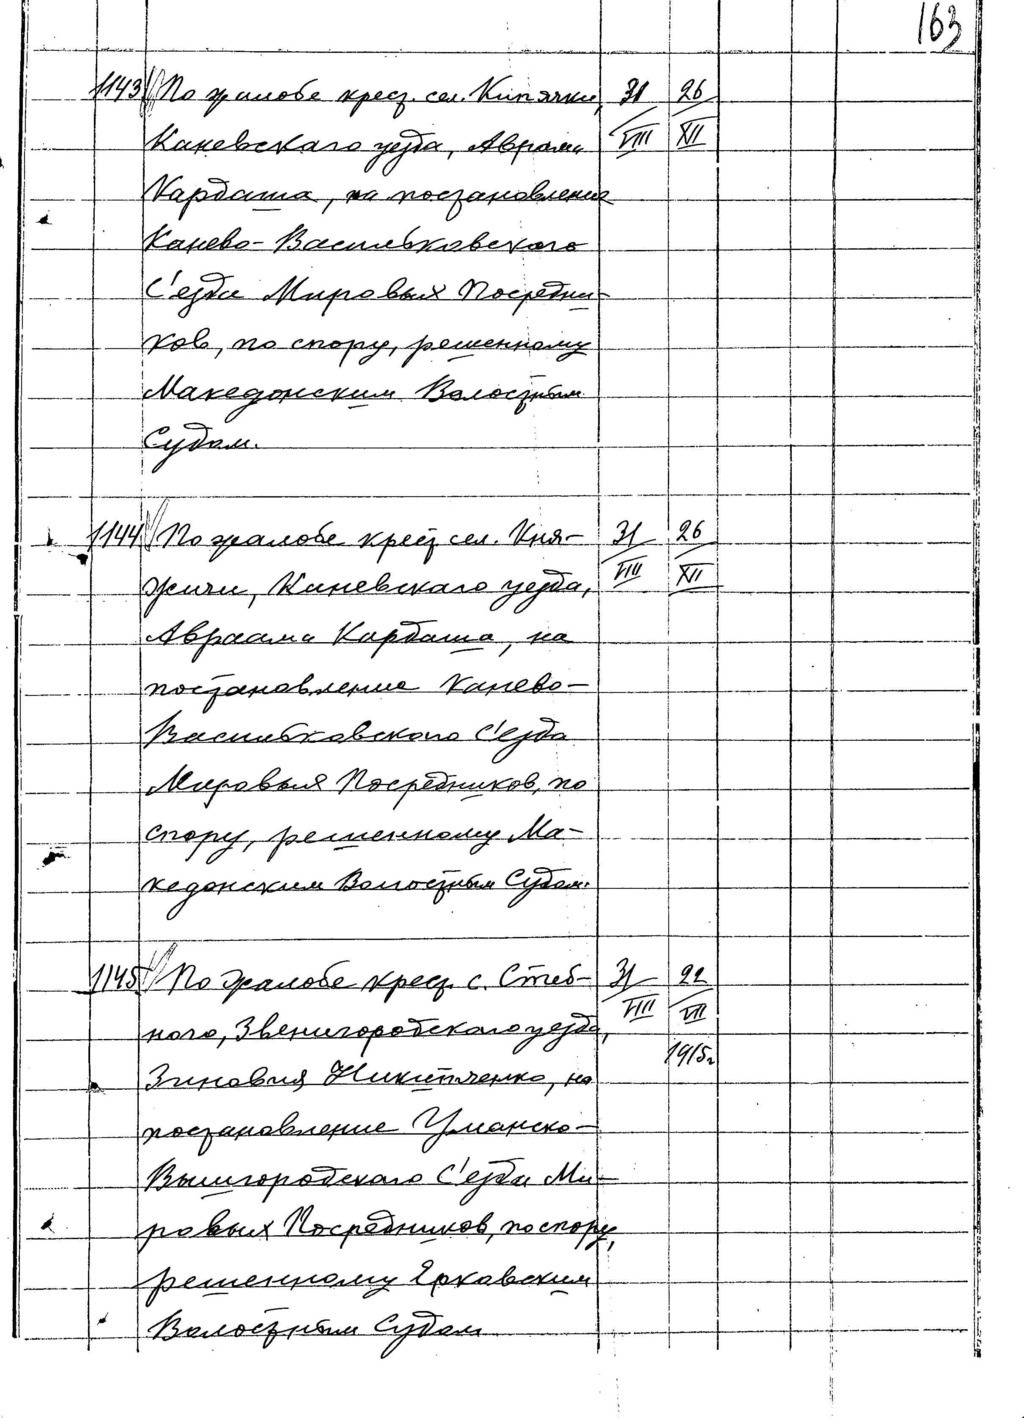 163
1143 По жалобе крест. сел. Кипячки, 31 26
Каневского уезда, Аврама VIII XII
Кардаша, на постановление
Канево-Васильковского
С'езда Мировых Посредни-
ков, по спору, решенному
Македонским Волостным
Судом.
1144 По жалобе крест. сел. Кня- 31 26
жичи, Каневскаго уезда, VIII XII
Авраама Кардаша, на
постановление Канево-
Васильковского С'езда
Мировых Посредников, по
спору, решенному Ма-
кедонским Волостным Судом.
1145 По жалобе крест. с. Стеб- 31 22
ного, Звенигородскаго уезда, VIII VII
1915г
Зиновия Никитченко, на
постановление Уманско-
Вышгородскаго С'езда Ми-
ровых Посредников, по спору,
решенному Ерковским
Волостным Судом